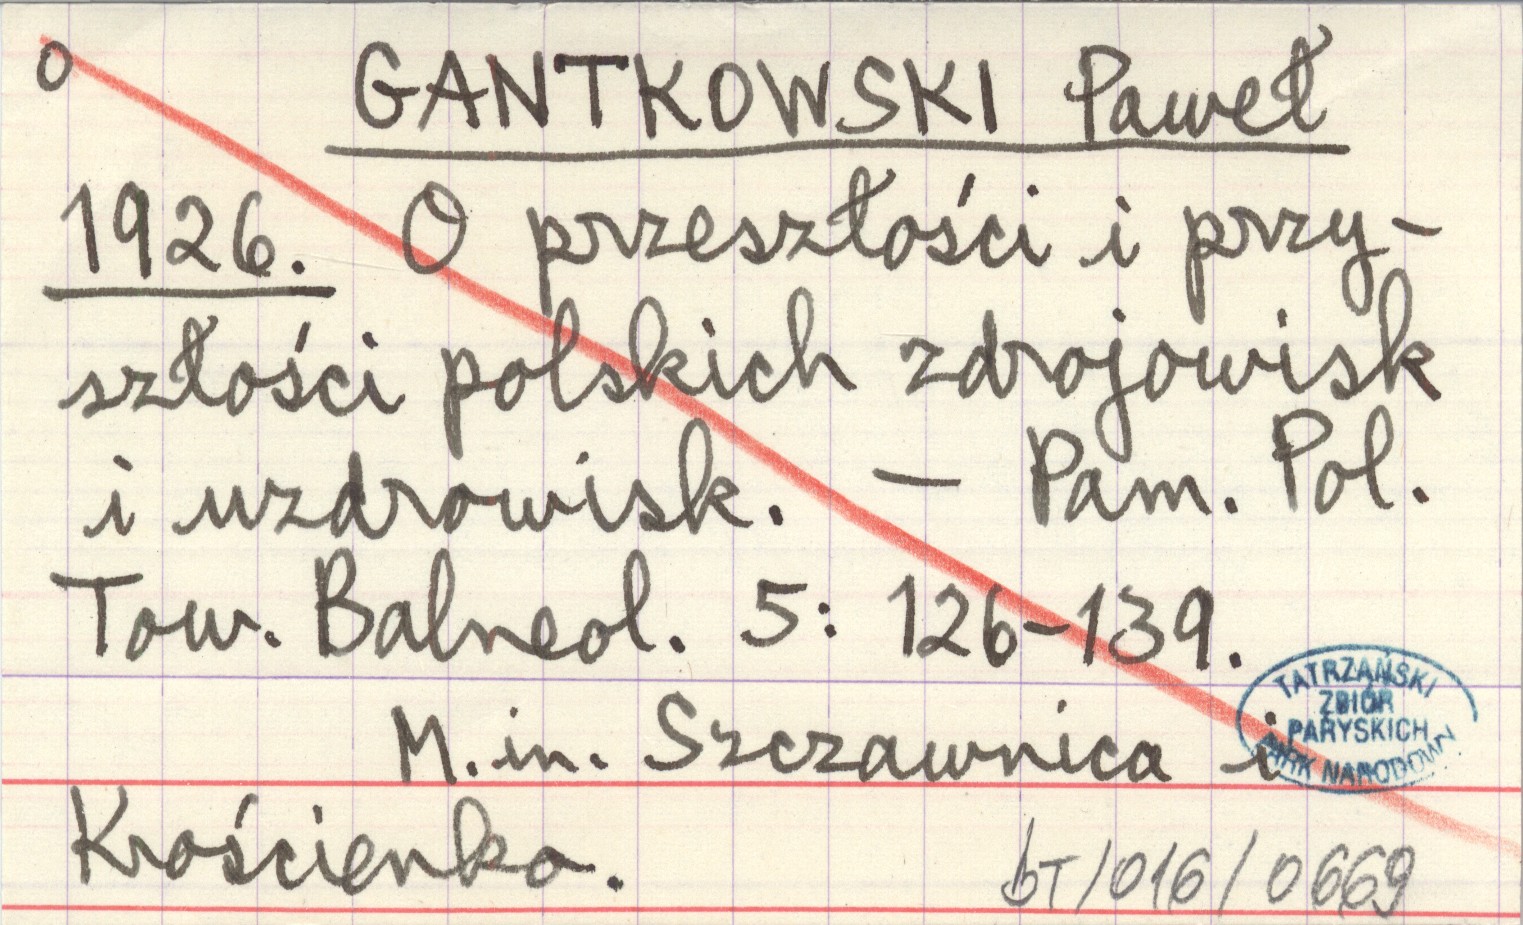 o GANTKOWSKI Paweł
1926. O przeszłości i przy-
szłości polskich zdrojowisk
i uzdrowisk. — Pam. Pol.
Tow. Balneol. 5: 126-139.
M. in. Szczawnica i
Krościenko.
TATRZAŃSKI
ZBIÓR
PARYSKICH
PARK NARODOWY
bT/016/0669